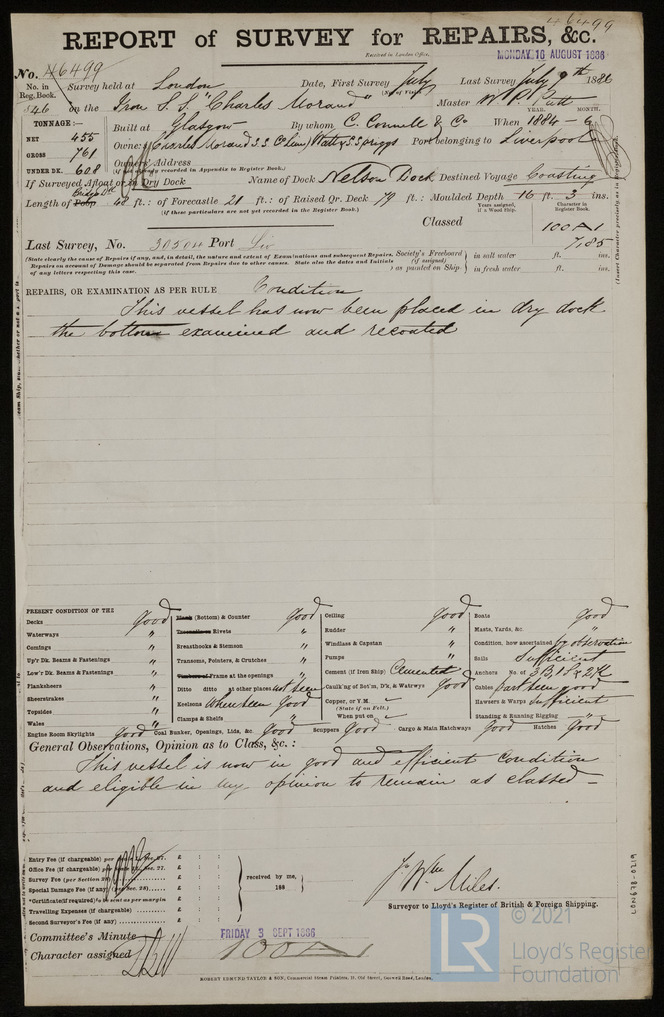 46499
REPORT of SURVEY for REPAIRS, &c.
Received in London Office,
MONDAY 16 AUGUST 1886
No. 46499
No. in Reg. Book. Survey held at London Date, First Survey July Last Survey July 9th 1886
on the Iron S.S. "Charles Morand" Master
TONNAGE:— Built at Glasgow By whom C. Connell & Co When 1884 - 6
YEAR. MONTH.
NET 455
GROSS 761
UNDER DK. 608
Owners Charles Morand S.S. Co Port belonging to Liverpool
Owners' Address
(if not already recorded in Appendix to Register Book.)
If Surveyed Afloat or in Dry Dock Name of Dock Nelson Dock Destined Voyage Coasting
Length of Poop ft.: of Forecastle 21 ft.: of Raised Qr. Deck 79 ft.: Moulded Depth 16 ft. 3 ins.
(if these particulars are not yet recorded in the Register Book.)
Years assigned, if a Wood Ship. Character in Register Book.
Classed 100A1
7,85
Last Survey, No. 30504 Port Liv
(State clearly the cause of Repairs if any, and, in detail, the nature and extent of Examinations and subsequent Repairs.
Repairs on account of Damage should be separated from Repairs due to other causes. State also the dates and Initials
of any letters respecting this case.
Society's Freeboard (if assigned) as painted on Ship. in salt water ft. ins.
in fresh water ft. ins.
REPAIRS, OR EXAMINATION AS PER RULE Condition
This vessel has now been placed in dry dock
the bottom examined and recoated
PRESENT CONDITION OF THE
Decks Good
Waterways "
Comings "
Up'r Dk. Beams & Fastenings "
Low'r Dk. Beams & Fastenings "
Planksheers "
Sheerstrakes "
Topsides "
Wales "
Engine Room Skylights Good
Plank (Bottom) & Counter Good
Treenails or Rivets "
Breasthooks & Stemson "
Transoms, Pointers, & Crutches "
Timbers of Frame at the openings "
Ditto ditto at other places not seen
Keelsons where seen Good
Clamps & Shelfs "
Coal Bunker, Openings, Lids, &c. Good
Ceiling Good
Rudder "
Windlass & Capstan "
Pumps "
Cement (if Iron Ship) Cemented
Caulk'ng of Bot'm, D'k, & Watrwys Good
Copper, or Y.M.
(State if on Felt.)
When put on
Scuppers Good
Cargo & Main Hatchways Good
Boats Good
Masts, Yards, &c. "
Condition, how ascertained by observation
Sails Sufficient
Anchors No. of 3B, 1S & 2K
Cables Part seen good
Hawsers & Warps Sufficient
Standing & Running Rigging "
Hatches Good
General Observations, Opinion as to Class, &c.:
This vessel is now in good and efficient condition
and eligible in my opinion to remain as classed
Entry Fee (if chargeable) £ : :
Office Fee (if chargeable) £ : :
Survey Fee (per Section 28) £ : :
Special Damage Fee (if any) (per Sec. 28) £ : :
*Certificate (if required) to be sent as per margin £ : :
Travelling Expenses (if chargeable) £ : :
Second Surveyor's Fee (if any) £ : :
received by me,
188
Miles.
Surveyor to Lloyd's Register of British & Foreign Shipping.
Committee's Minute FRIDAY 3 SEPT 1886
Character assigned 100A1
ROBERT EDMUND TAYLOR & SON, Commercial Steam Printers, 19, Old Street, Goswell Road, London.
LON678-0219
© 2021
LR
Lloyd's Register
Foundation